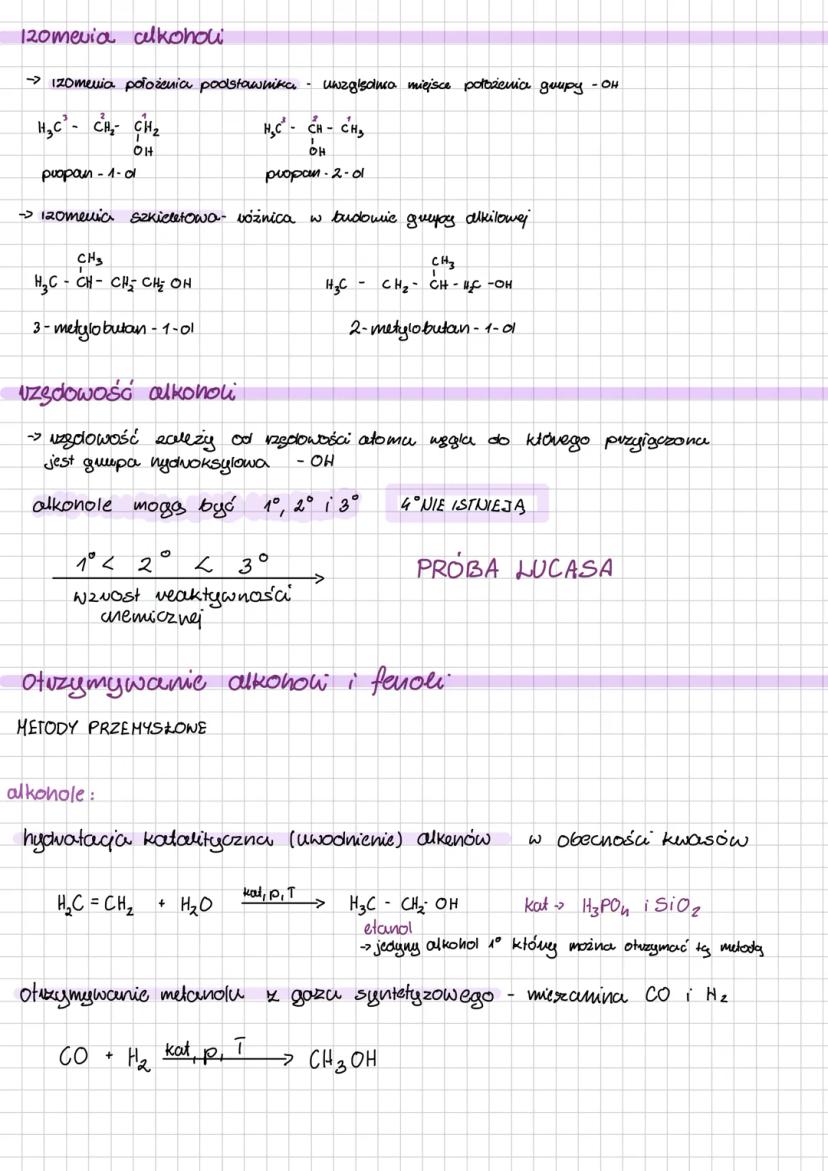 Izomeria alkoholi
→ izomeria położenia podstawnika - uwzględnia miejsce położenia grupy -OH
H₃C³ - C²H₂ - C¹H₂ H₃C³ - C²H - C¹H₃
OH OH
propan-1-ol propan-2-ol
→ izomeria szkieletowa - różnica w budowie grupy alkilowej
CH₃ CH₃
H₃C - CH - CH₂ - CH₂ OH H₃C - CH₂ - CH - H₂C - OH
3-metylobutan-1-ol 2-metylobutan-1-ol
rzędowość alkoholi
→ rzędowość zależy od rzędowości atomu węgla do którego przyłączona
jest grupa hydroksylowa - OH
alkohole mogą być 1°, 2° i 3° 4° NIE ISTNIEJĄ
1° < 2° < 3° PRÓBA LUCASA
wzrost reaktywności
chemicznej
Otrzymywanie alkoholi i fenoli
METODY PRZEMYSŁOWE
alkohole:
hydratacja katalityczna (uwodnienie) alkenów w obecności kwasów
H₂C = CH₂ + H₂O kat, p, T → H₃C - CH₂ - OH kat → H₃PO₄ i SiO₂
etanol
→ jedyny alkohol 1° który można otrzymać tą metodą
otrzymywanie metanolu z gazu syntetyzowego - mieszanina CO i H₂
CO + H₂ kat, p, T → CH₃OH